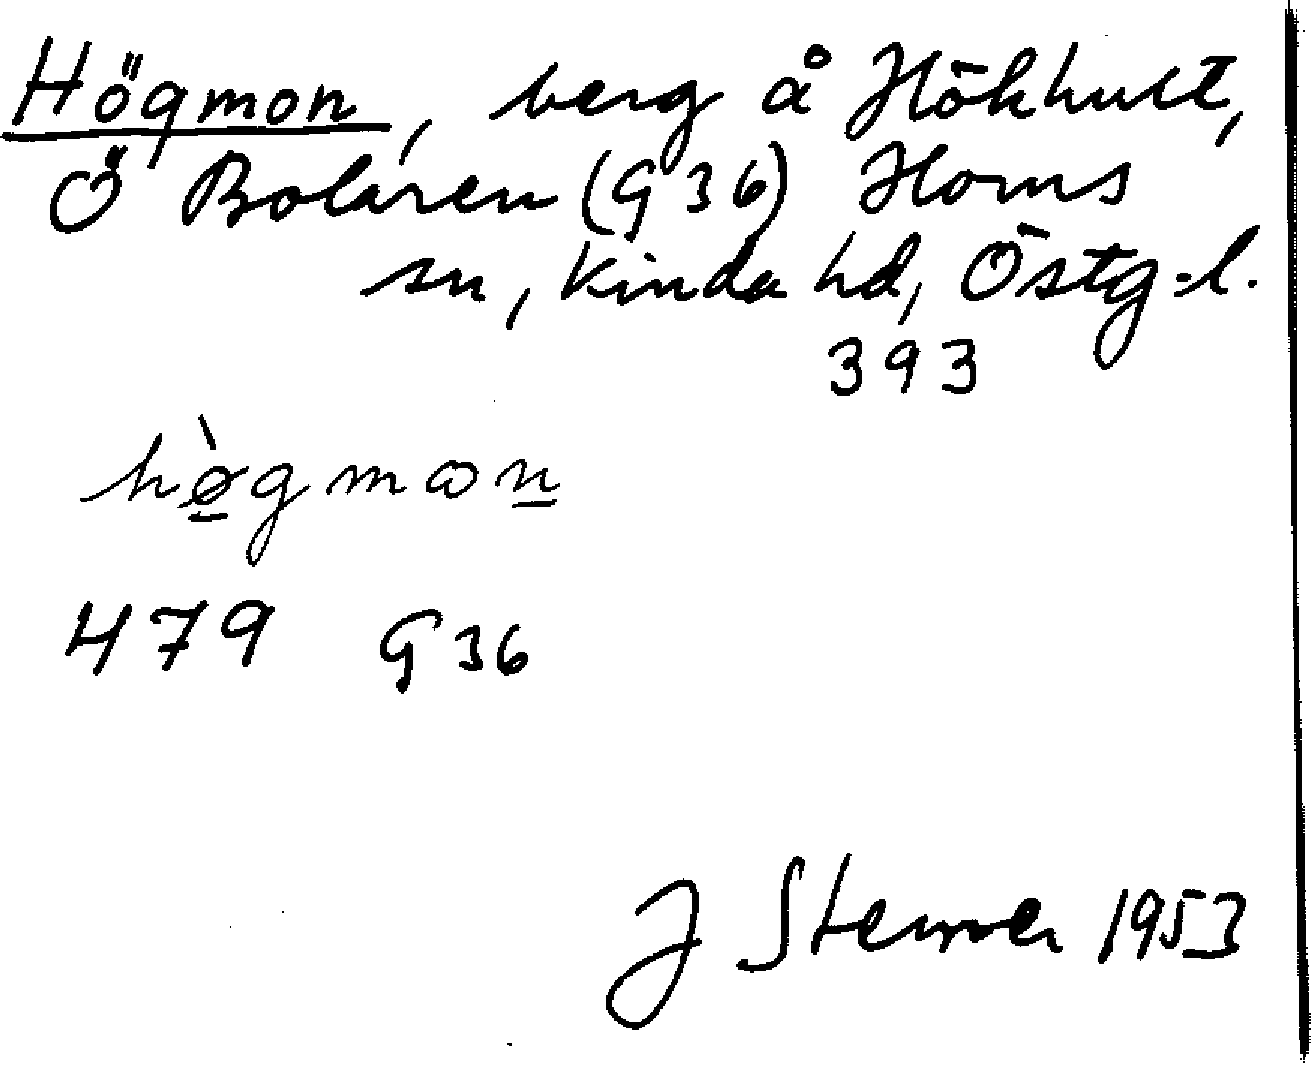 Högmon, berg å Hökhult,
Ö Bolaren (G 36) Horns
sn, Kinda hd, Östg-l.
393
hø̠̀gmωn̠
479 G 36
J 1953